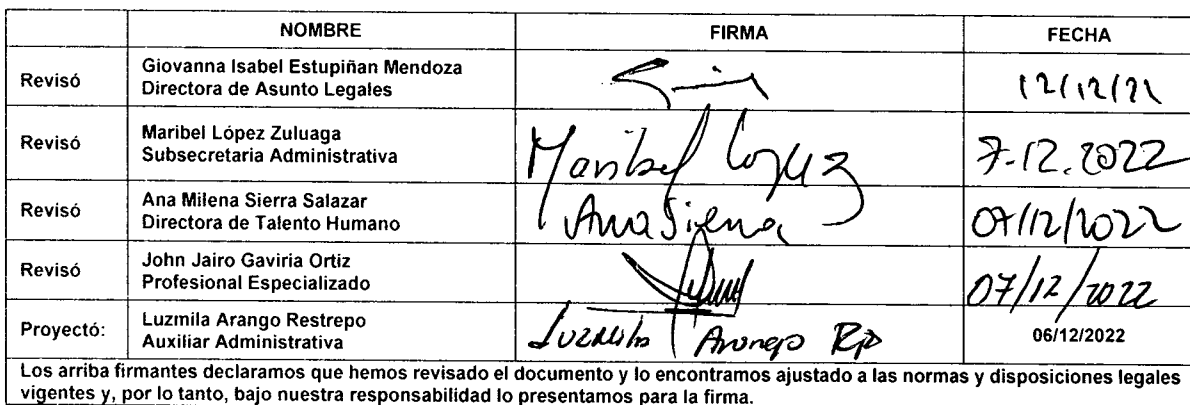 NOMBRE FIRMA FECHA
Revisó Giovanna Isabel Estupiñan Mendoza
Directora de Asunto Legales 12/12/22
Revisó Maribel López Zuluaga
Subsecretaria Administrativa Maribel López 7.12.2022
Revisó Ana Milena Sierra Salazar
Directora de Talento Humano Ana Sierra 07/12/2022
Revisó John Jairo Gaviria Ortiz
Profesional Especializado 07/12/2022
Proyectó: Luzmila Arango Restrepo
Auxiliar Administrativa Luzmila Arango Rpo 06/12/2022
Los arriba firmantes declaramos que hemos revisado el documento y lo encontramos ajustado a las normas y disposiciones legales
vigentes y, por lo tanto, bajo nuestra responsabilidad lo presentamos para la firma.